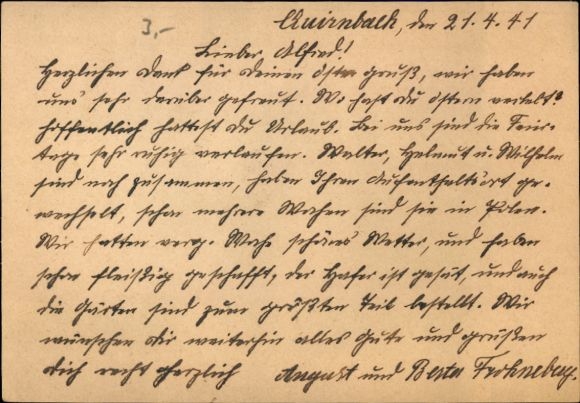 3,-
Quirnbach, den 21.4.41
Lieber Alfred!
Herzlichen Dank für Deinen Ostergruß, wir haben
uns sehr darüber gefreut. Wo hast Du Ostern verlebt?
hoffentlich hattest Du Urlaub. Bei uns sind die Feier-
tage sehr ruhig verlaufen. Walter, Helmut u. Wilhelm
sind noch zusammen, haben Ihren Aufenthaltsort ge-
wechselt, schon mehrere Wochen sind sie in Polen.
Wir hatten verg. Woche schönes Wetter, und haben
schon fleißig geschafft, der Hafer ist gesät, und auch
die Gärten sind zum größten Teil bestellt. Wir
wünschen Dir weiterhin alles Gute und grüßen
Dich recht herzlich August und Berta